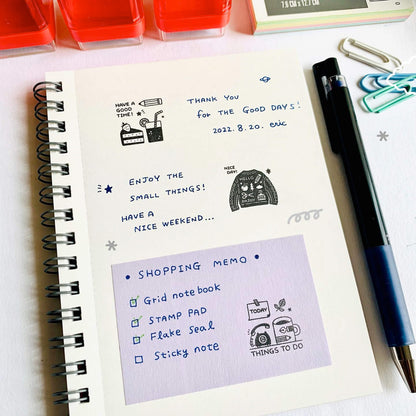 7.6 CM x 12.7 CM
HAVE A
GOOD
TIME!
THANK YOU
for the GOOD DAYS!
2022. 8. 20. eric
ENJOY THE
SMALL THINGS!
HAVE A
NICE WEEKEND...
NICE
DAY!
HELLO
• SHOPPING MEMO •
Grid notebook
STAMP PAD
Flake Seal
Sticky note
TODAY
THINGS TO DO